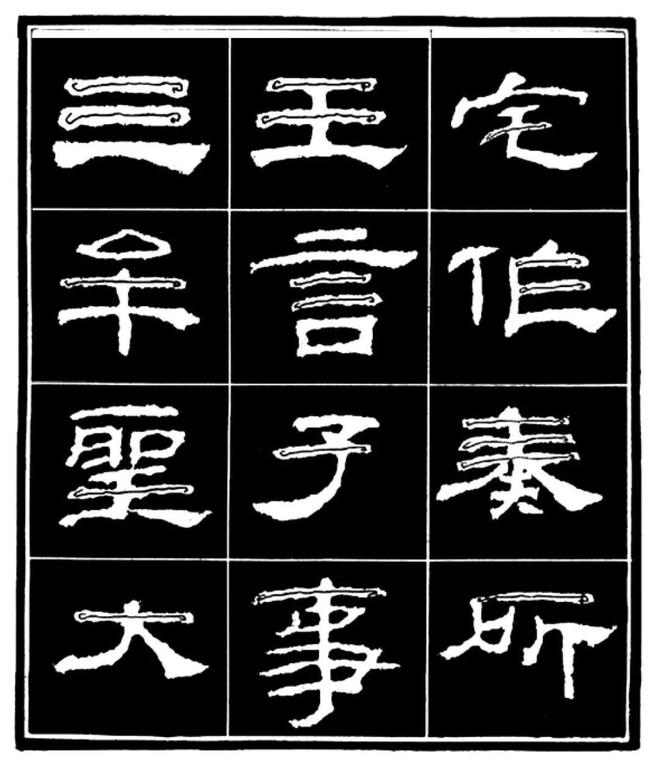 宅作奏所
王言子事
三牟聖大